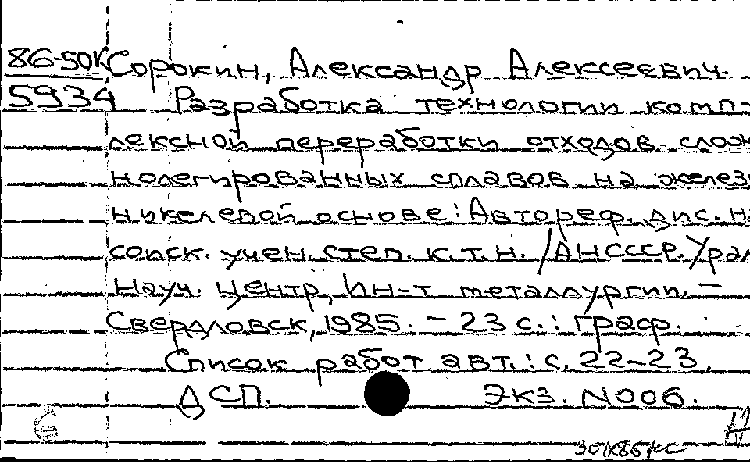 86-50к Сорокин, Александр Алексеевич.
5934 Разработка технологии комп-
лексной переработки отходов слож
нолегированных сплавов на железо
никелевой основе: Автореф. дис. на
соиск. учен. степ. к.т.н. /АН СССР. Урал
Науч. центр, Ин-т металлургии. –
Свердловск, 1985. – 23 с.: граф.
Список работ авт.: с. 22-23.
ДСП. Экз. N006.